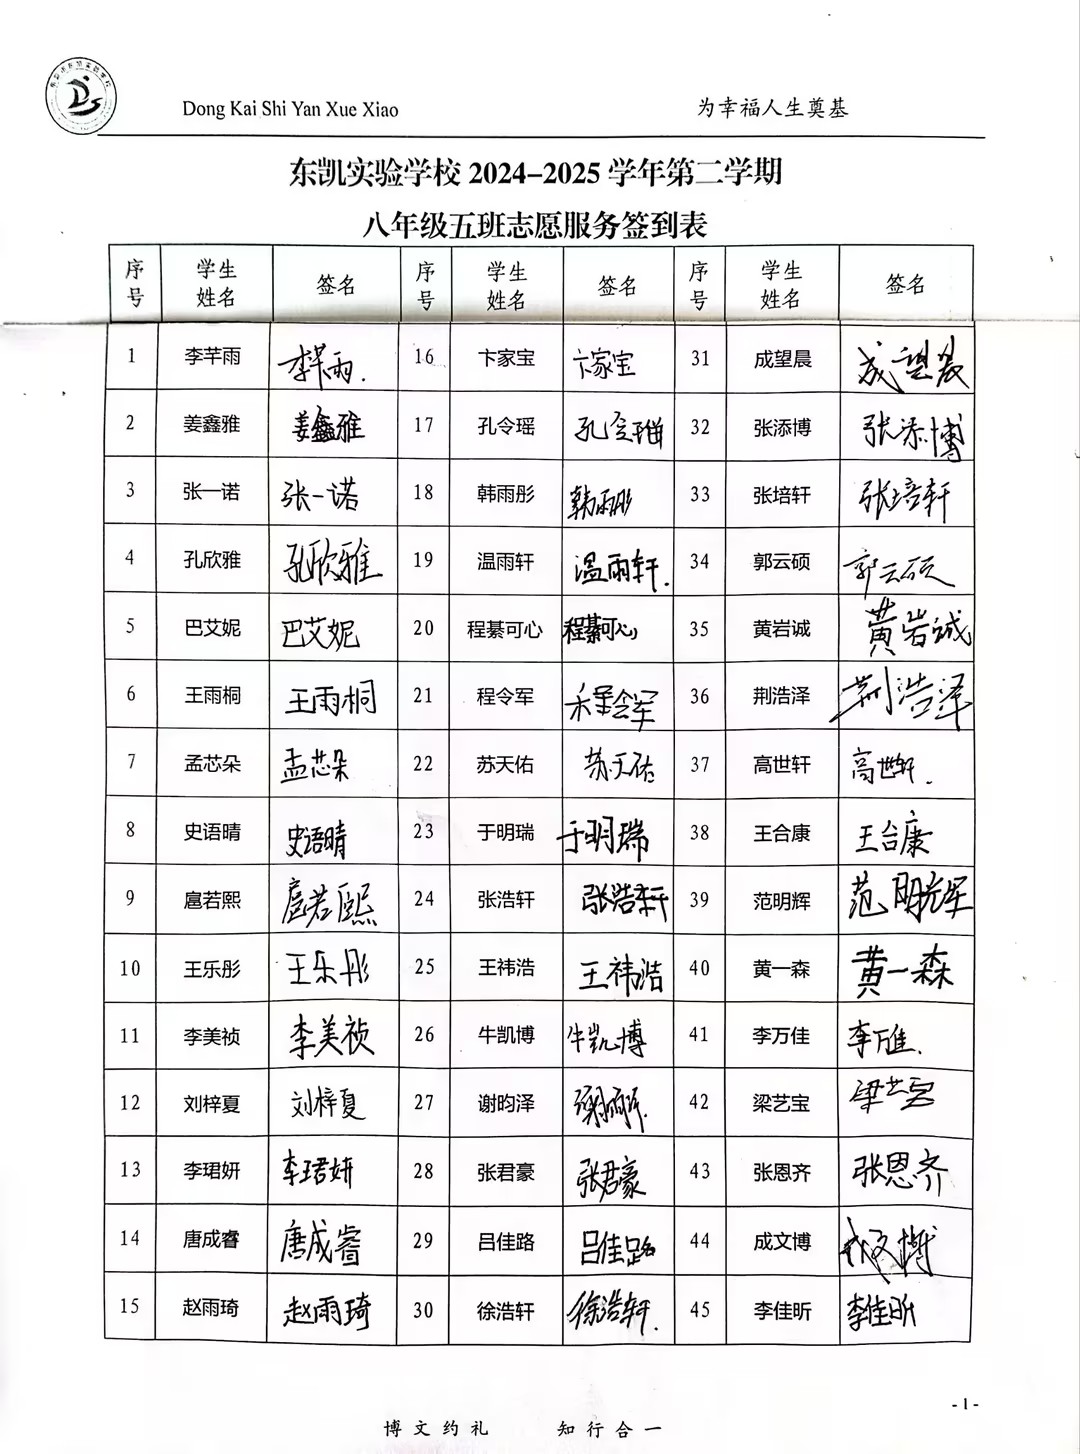 Dong Kai Shi Yan Xue Xiao 为幸福人生奠基
东凯实验学校 2024-2025 学年第二学期
八年级五班志愿服务签到表
序号 学生姓名 签名 序号 学生姓名 签名 序号 学生姓名 签名
1 李芊雨 李芊雨. 16 卞家宝 卞家宝 31 成望晨 成望晨
2 姜鑫雅 姜鑫雅 17 孔令瑶 孔令瑶 32 张添博 张添博
3 张一诺 张一诺 18 韩雨彤 韩雨彤 33 张培轩 张培轩
4 孔欣雅 孔欣雅 19 温雨轩 温雨轩. 34 郭云硕 郭云硕
5 巴艾妮 巴艾妮 20 程綦可心 程綦可心 35 黄岩诚 黄岩诚
6 王雨桐 王雨桐 21 程令军 程令军 36 荆浩泽 荆浩泽
7 孟芯朵 孟芯朵 22 苏天佑 苏天佑 37 高世轩 高世轩.
8 史语晴 史语晴 23 于明瑞 于明瑞 38 王合康 王合康
9 扈若熙 扈若熙 24 张浩轩 张浩轩 39 范明辉 范明辉
10 王乐彤 王乐彤 25 王祎浩 王祎浩 40 黄一森 黄一森
11 李美祯 李美祯 26 牛凯博 牛凯博 41 李万佳 李万佳.
12 刘梓夏 刘梓夏 27 谢昀泽 42 梁艺宝 梁艺宝
13 李珺妍 李珺妍 28 张君豪 张君豪 43 张恩齐 张恩齐
14 唐成睿 唐成睿 29 吕佳路 吕佳路 44 成文博 成文博
15 赵雨琦 赵雨琦 30 徐浩轩 徐浩轩. 45 李佳昕 李佳昕
- 1 -
博文约礼 知行合一